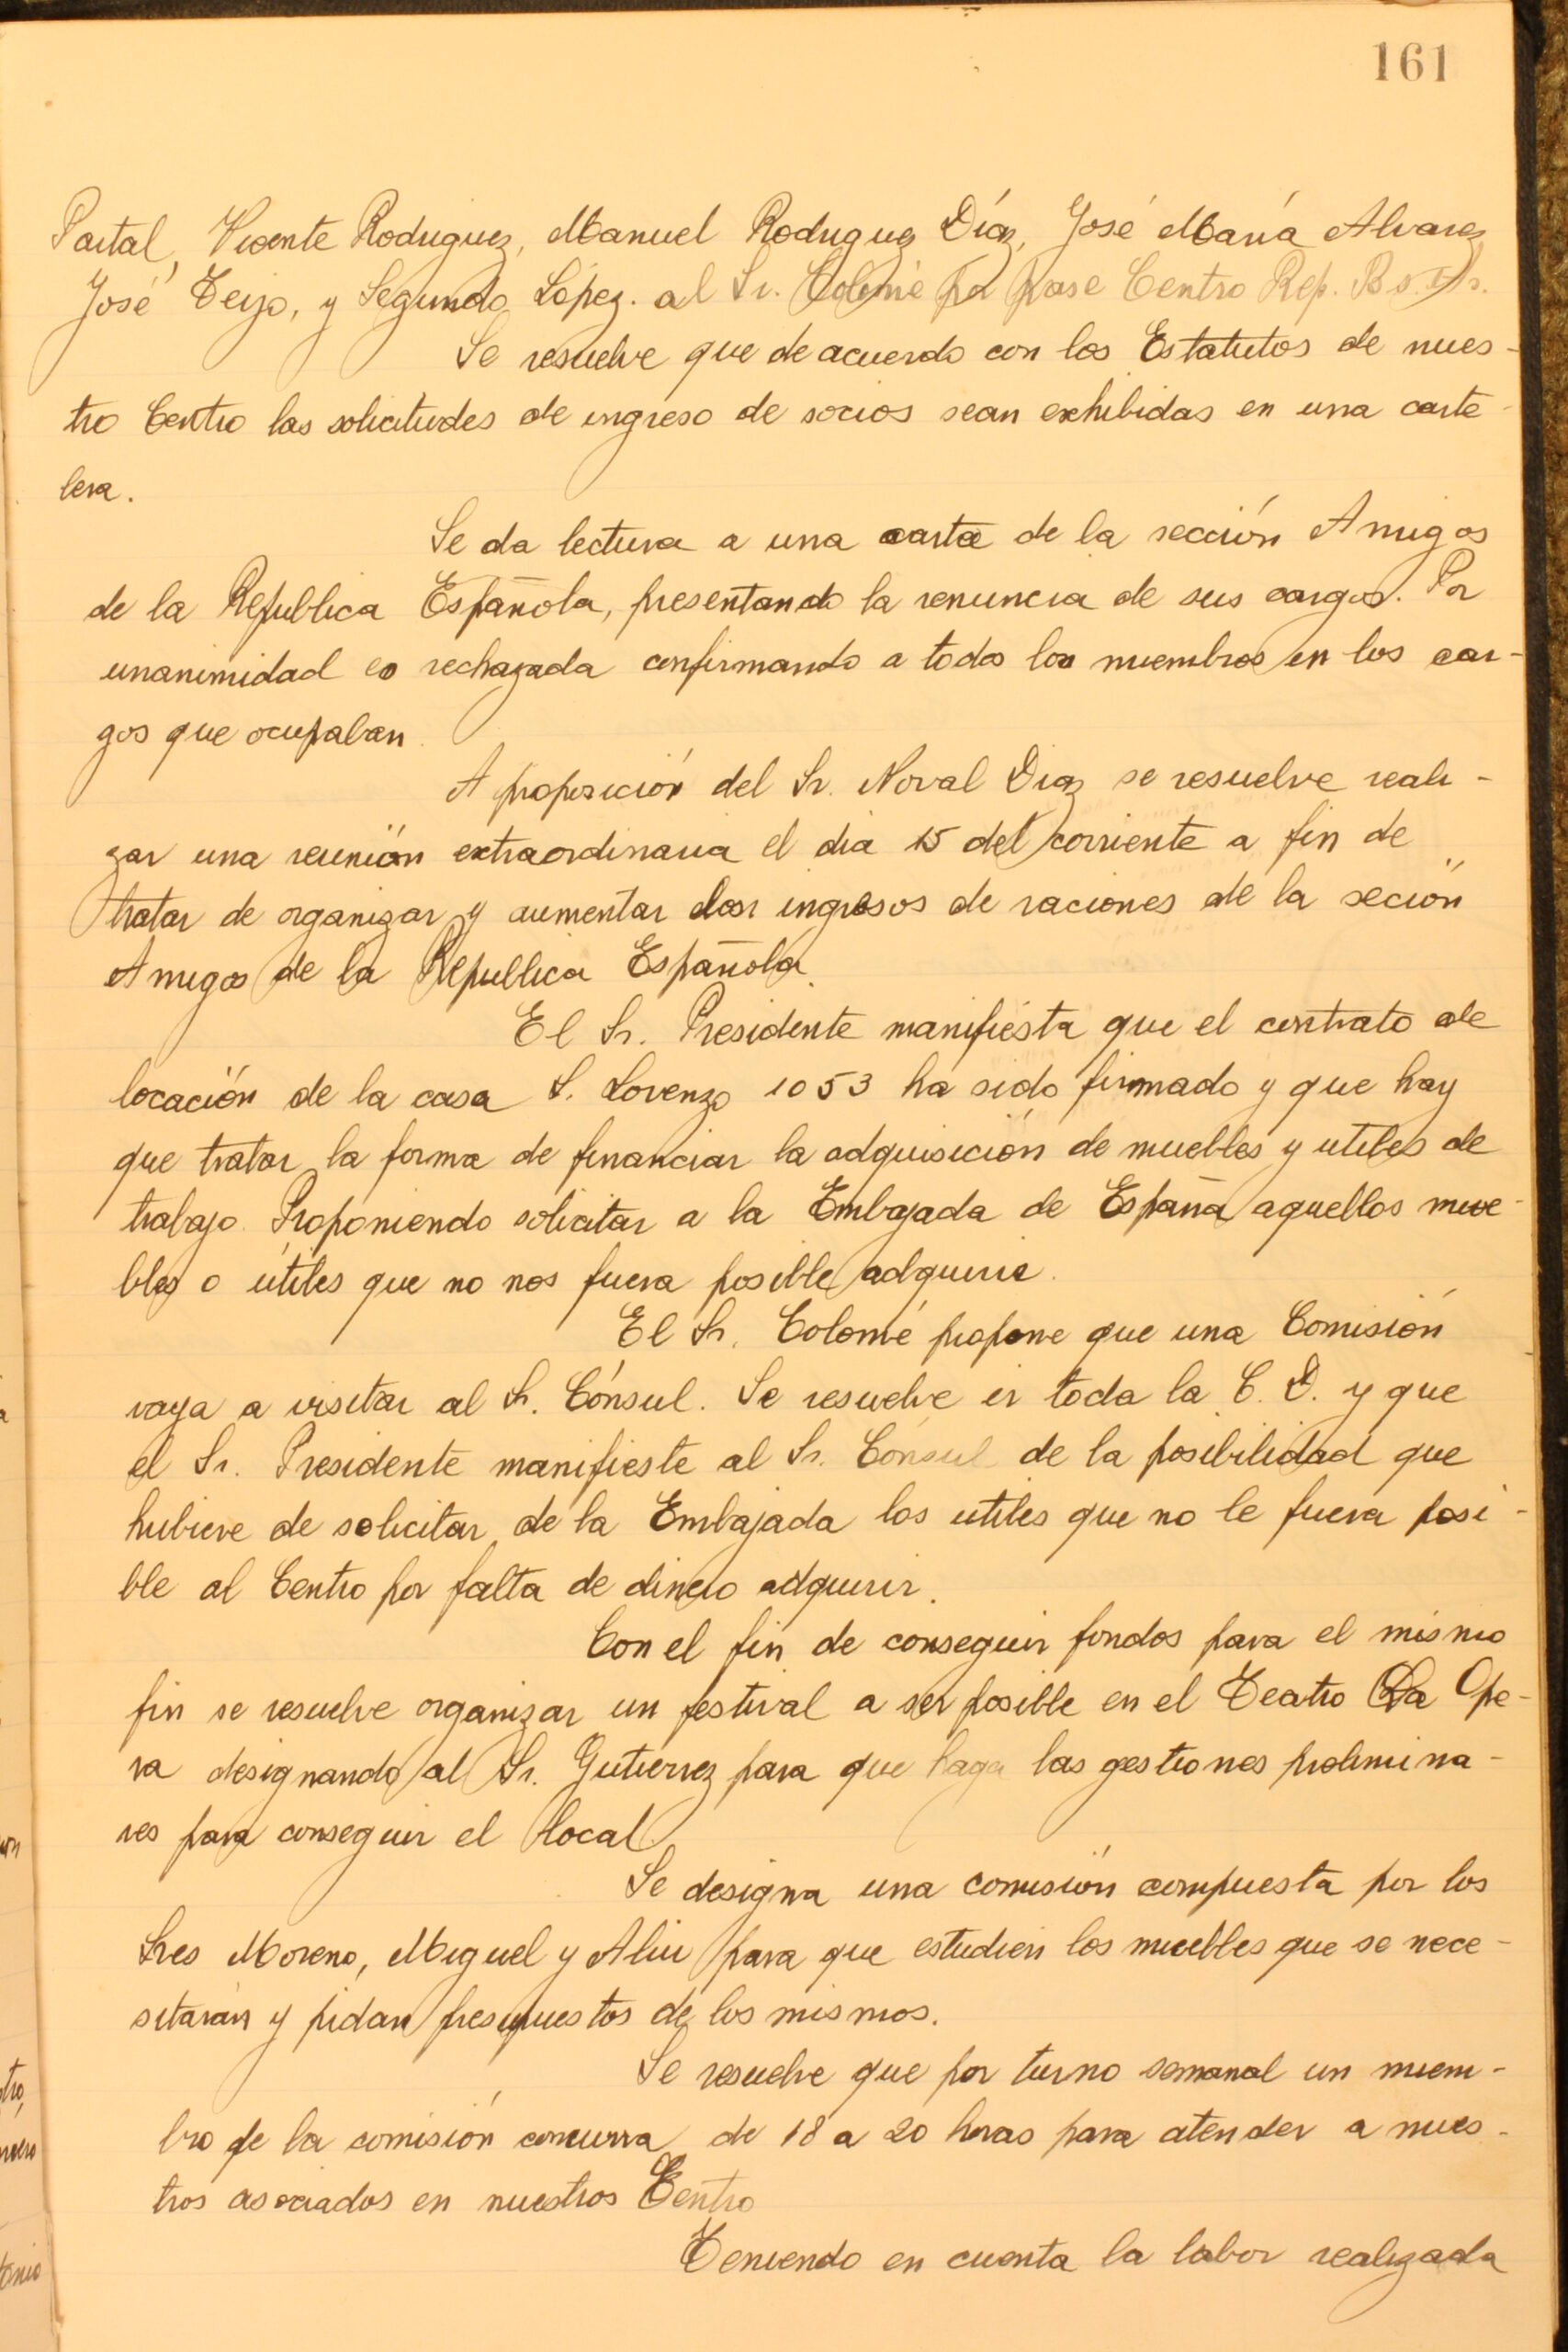 161
Partal, Vicente Rodriguez, Manuel Rodriguez Díaz, José María Alvarez
José Teijo, y Segundo López. al Sr. Colomé por pase Centro Rep. Bs. As.
Se resuelve que de acuerdo con los Estatutos de nues-
tro Centro las solicitudes de ingreso de socios sean exhibidas en una carte-
lera.
Se da lectura a una carta de la sección Amigos
de la Republica Española, presentando la renuncia de sus cargos. Por
unanimidad es rechazada confirmando a todos los miembros en los car-
gos que ocupaban.
A proposición del Sr. Noval Diaz se resuelve reali-
zar una reunión extraordinaria el dia 15 del corriente a fin de
tratar de organizar y aumentar los ingresos de raciones de la seción
Amigos de la Republica Española.
El Sr. Presidente manifiésta que el contrato de
locación de la casa S. Lorenzo 1053 ha sido firmado y que hay
que tratar la forma de financiar la adquisición de muebles y utiles de
trabajo. Proponiendo solicitar a la Embajada de España aquellos mue-
bles o útiles que no nos fuera posible adquirir.
El Sr. Colomé propone que una Comisión
vaya a visitar al Sr. Cónsul. Se resuelve ir toda la C. D. y que
el Sr. Presidente manifieste al Sr. Consul de la posibilidad que
hubiere de solicitar de la Embajada los utiles que no le fuera posi-
ble al Centro por falta de dinero adquirir.
Con el fin de conseguir fondos para el mismo
fin se resuelve organizar un festival a ser posible en el Teatro La Ope-
ra designando al Sr. Gutierrez para que haga las gestiones prelimina-
res para conseguir el local.
Se designa una comisión compuesta por los
Sres Moreno, Miguel y para que estudien los muebles que se nece-
sitarán y pidan presupuestos de los mismos.
Se resuelve que por turno semanal un miem-
bro de la comisión concurra de 18 a 20 horas para atender a nues-
tros asociados en nuestros Centro
Teniendo en cuenta la labor realizada